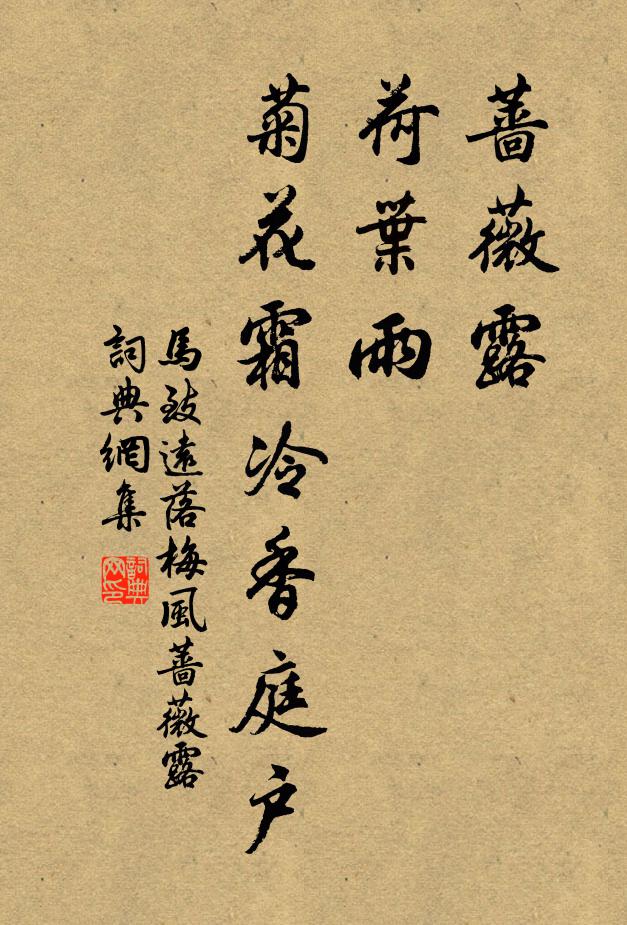 薔薇露
荷葉雨
菊花霜冷香庭戶
馬致遠落梅風薔薇露
詞典網集
詞典网印